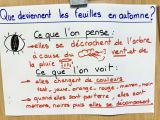 Que deviennent les feuilles en automne?
Ce que l'on pense:
elles se décrochent de l'arbre
à cause du vent et de
la pluie
Ce que l'on voit:
elles changent de couleurs
vert, jaune, orange, rouge, marron, noir
quand elles sont par terre elles sont
marrons, noires puis elles se décomposent.